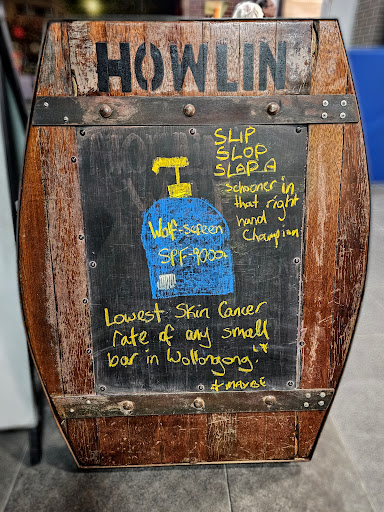 HOWLIN
SLIP
SLOP
SLAP A
Schooner in
that right
hand
Champion
Wolf-Screen
SPF-9000+
Lowest Skin Cancer
rate of any small
bar in Wollongong.*
* MAYBE